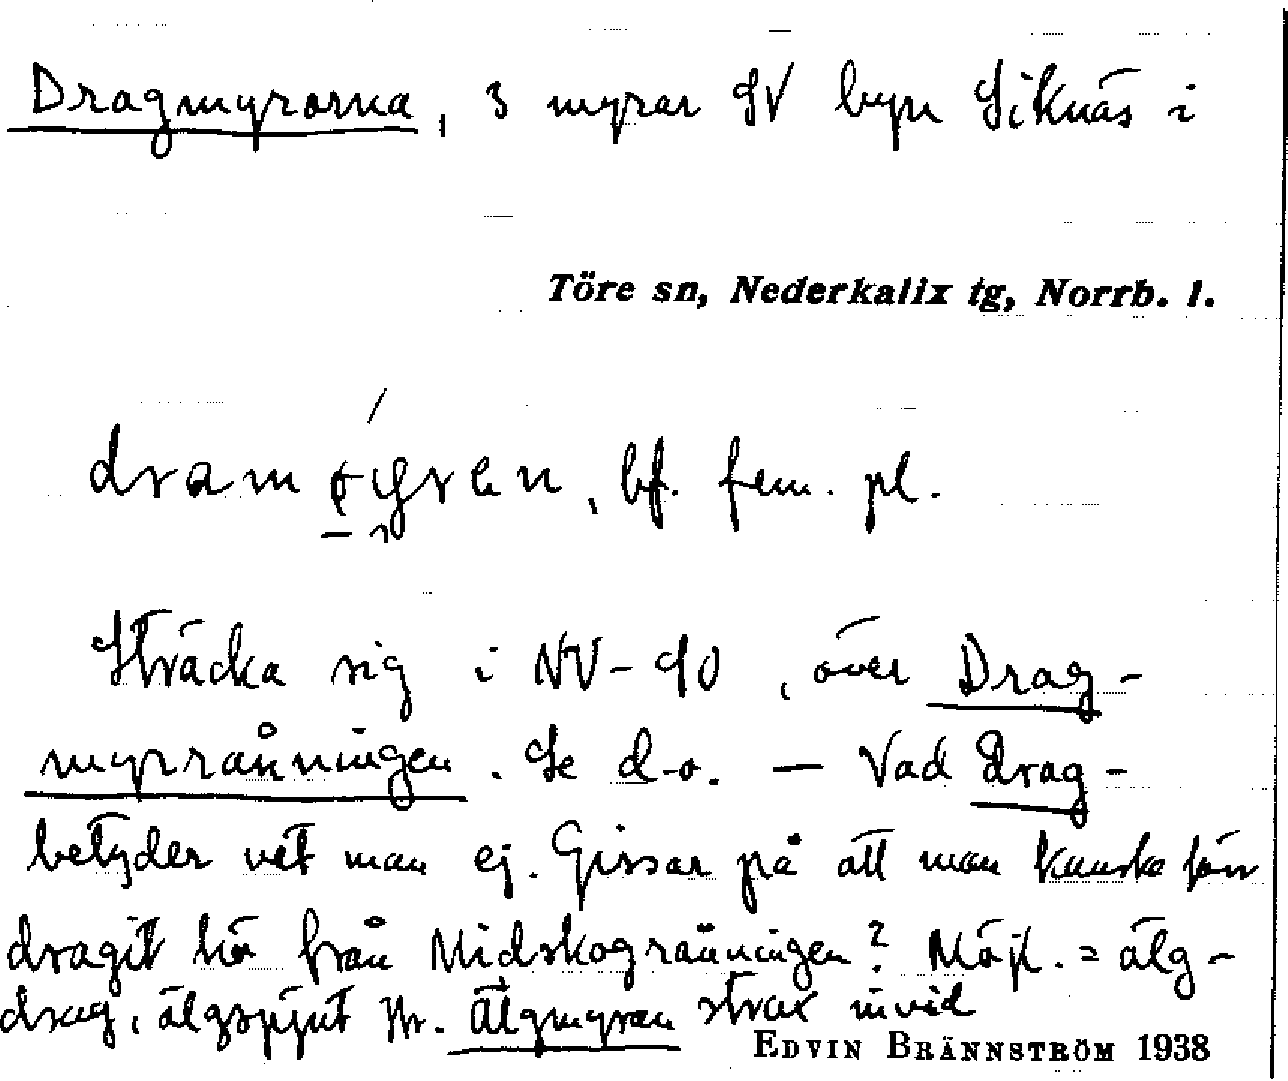 Dragmyrorna, 3 myrar SV byn Siknäs i
Töre sn, Nederkalix tg, Norrb. l.
bf. fem. pl.
Sträcka sig i NV-SO, över Drag-
myrrånningen. Se d.o. — Vad drag-
betyder vet man ej. Gissar på att man kanske förr
dragit hö från Midskogrånningen? Möjl. = älg-
drag, älgspjut Jfr. Älgmyran strax invid
EDVIN BRÄNNSTRÖM 1938